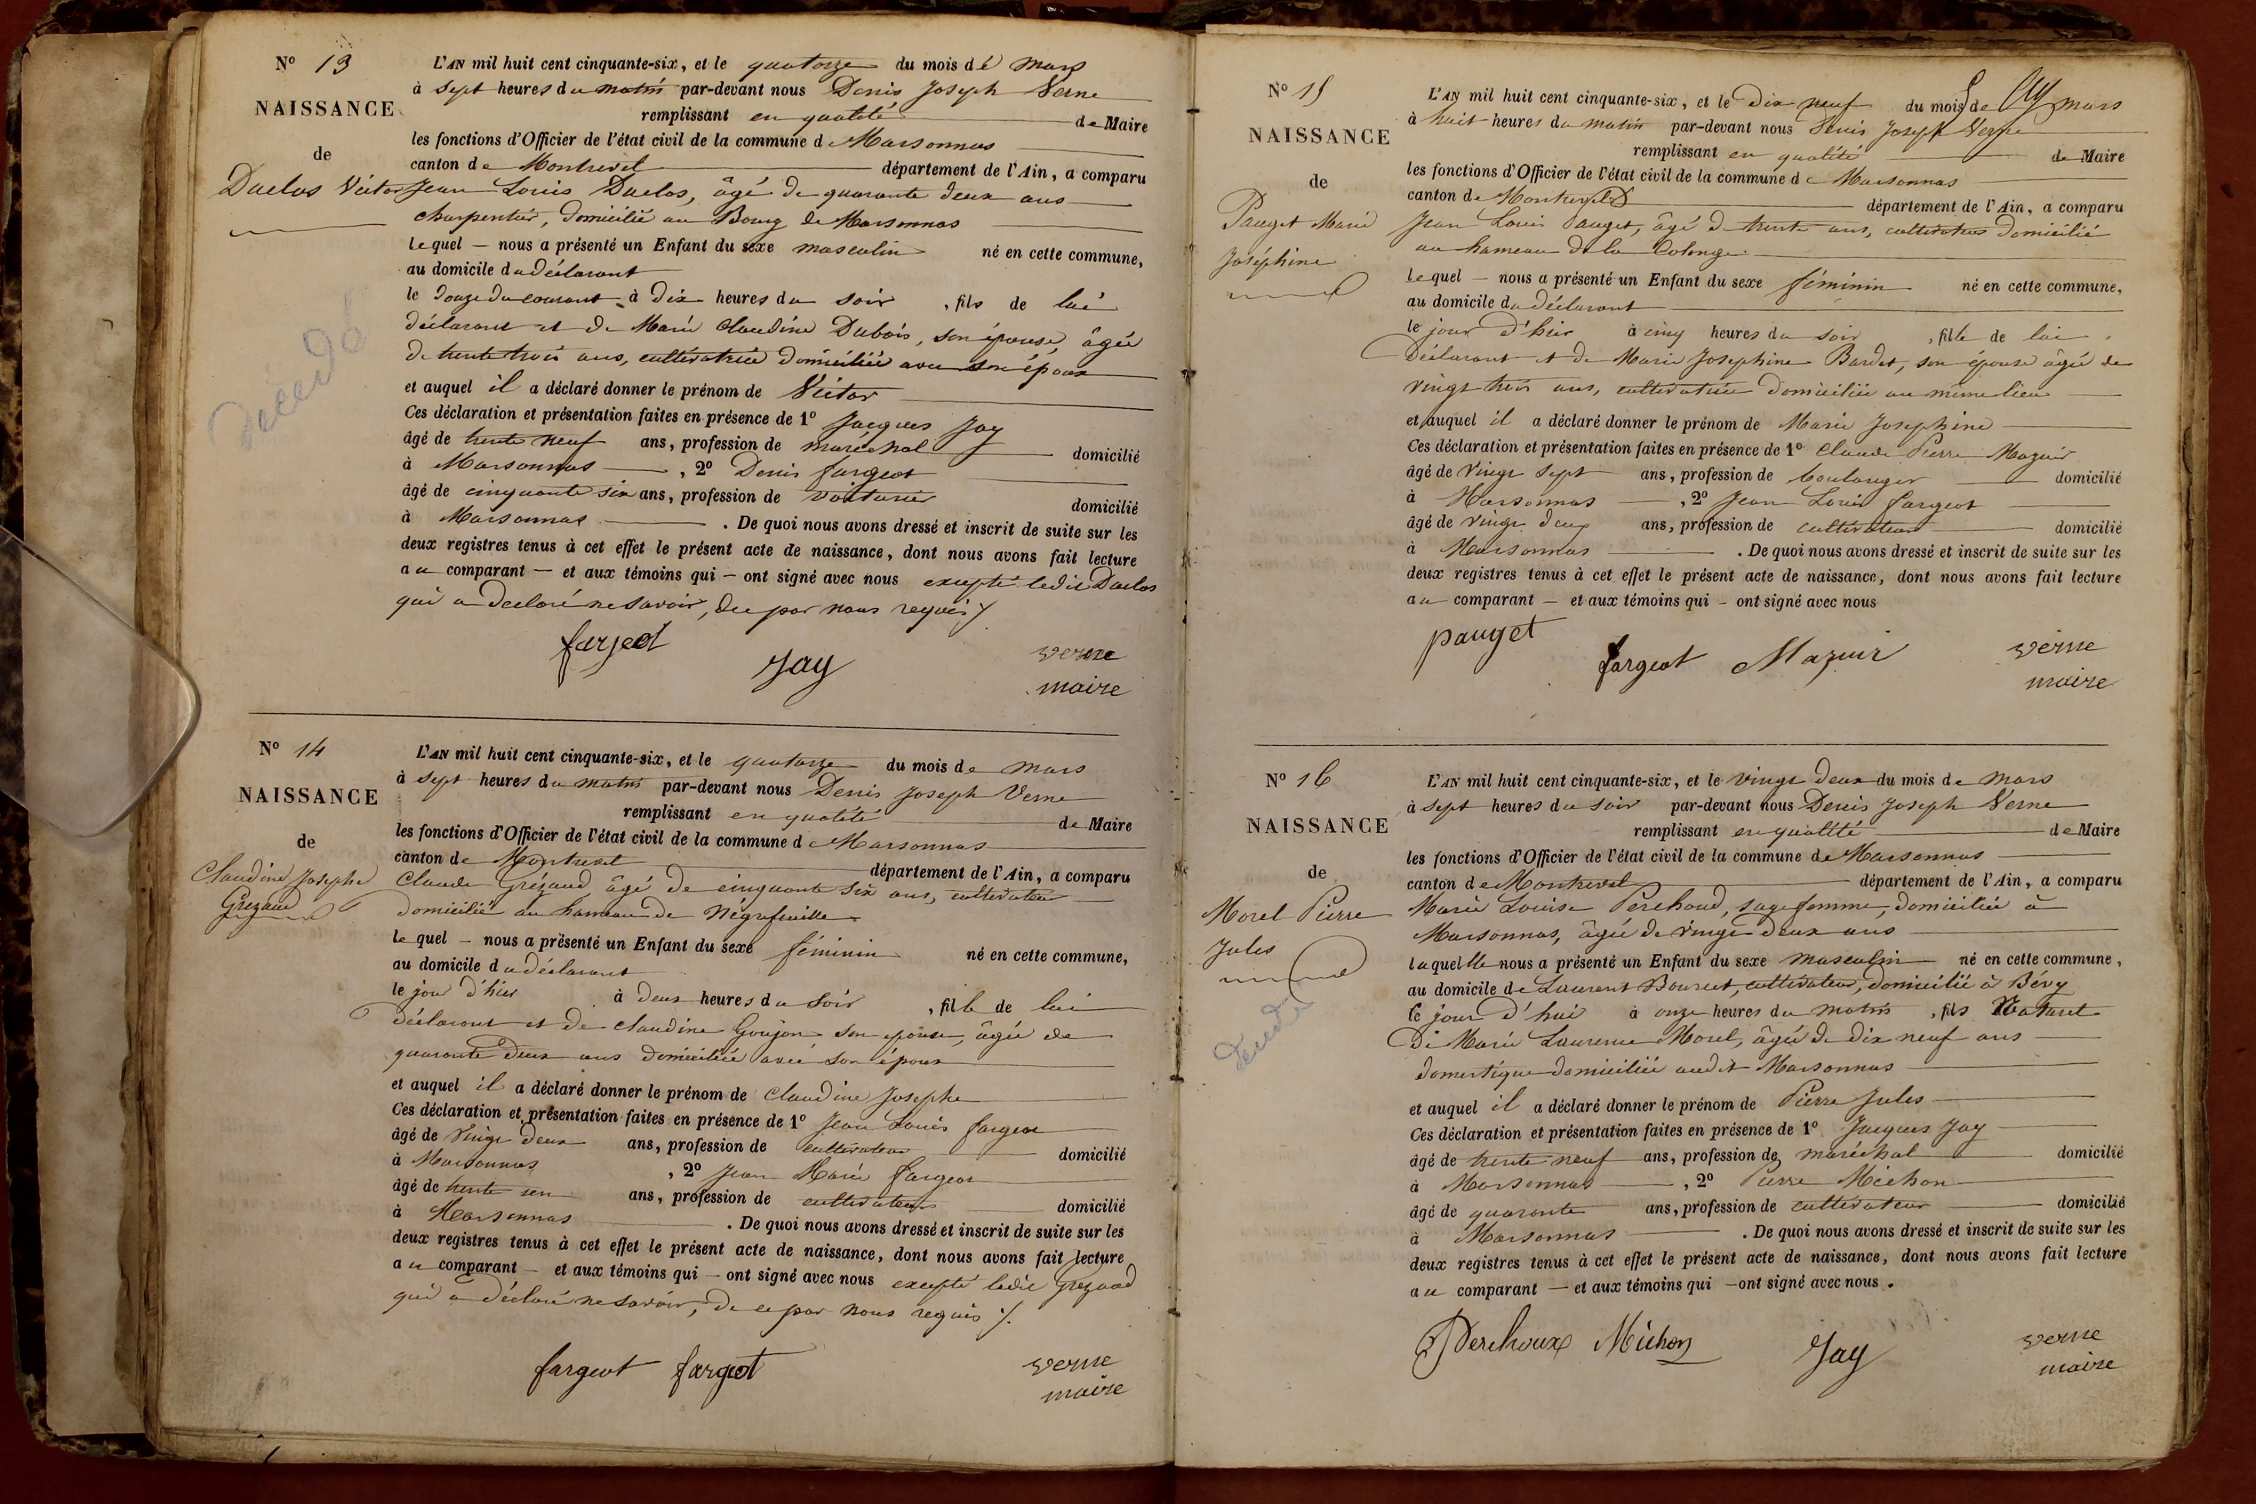 Nº 13
NAISSANCE
de
Duclos Victor
décédé
L'AN mil huit cent cinquante-six, et le quatorze du mois de mars
à sept heures du matin par-devant nous Denis Joseph Verne
remplissant en qualité de Maire
les fonctions d'Officier de l'état civil de la commune de Marsonnas
canton de Montrevel département de l'Ain, a comparu
Jean Louis Duclos, âgé de quarante deux ans
charpentier, domicilié au Bourg de Marsonnas
lequel — nous a présenté un Enfant du sexe masculin né en cette commune,
au domicile du déclarant
le douze du courant à dix heures du soir, fils de lui
déclarant et de Marie Claudine Dubois, son épouse, âgée
de trente trois ans, cultivatrice domiciliée avec son époux
et auquel il a déclaré donner le prénom de Victor
Ces déclaration et présentation faites en présence de 1º Jacques Jay
âgé de trente neuf ans, profession de maréchal domicilié
à Marsonnas, 2º Denis fargeot
âgé de cinquante six ans, profession de voiturier domicilié
à Marsonnas. De quoi nous avons dressé et inscrit de suite sur les
deux registres tenus à cet effet le présent acte de naissance, dont nous avons fait lecture
au comparant — et aux témoins qui — ont signé avec nous excepté ledit Duclos
qui a declaré ne savoir, de ce par nous requis ./.
fargeot
Jay
verne
maire
Nº 14
NAISSANCE
de
Claudine Josephe
Grezaud
L'AN mil huit cent cinquante-six, et le quatorze du mois de mars
à sept heures du matin par-devant nous Denis Joseph Verne
remplissant en qualité de Maire
les fonctions d'Officier de l'état civil de la commune de Marsonnas
canton de Montrevel département de l'Ain, a comparu
Claude Grézaud, âgé de cinquante six ans, cultivateur
domicilié au hameau de Négrefeuille
lequel — nous a présenté un Enfant du sexe féminin né en cette commune,
au domicile du déclarant
le jour d'hier à deux heures du soir, fille de lui
déclarant et de Claudine Goujon son épouse, âgée de
quarante deux ans domiciliée avec son époux
et auquel il a déclaré donner le prénom de Claudine Josephe
Ces déclaration et présentation faites en présence de 1º Jean Louis fargeot
âgé de vingt deux ans, profession de cultivateur domicilié
à Marsonnas, 2º Jean Marie fargeot
âgé de trente un ans, profession de cultivateur domicilié
à Marsonnas. De quoi nous avons dressé et inscrit de suite sur les
deux registres tenus à cet effet le présent acte de naissance, dont nous avons fait lecture
au comparant — et aux témoins qui — ont signé avec nous excepté ledit Grezaud
qui a déclaré ne savoir, de ce par nous requis ./.
fargeot fargeot
verne
maire
Nº 15
NAISSANCE
de
Pauget Marie
Joséphine
L'AN mil huit cent cinquante-six, et le dix neuf du mois de mars
à huit heures du matin par-devant nous Denis Joseph Verne
remplissant en qualité de Maire
les fonctions d'Officier de l'état civil de la commune de Marsonnas
canton de Montrevel département de l'Ain, a comparu
Jean Louis Pauget, âgé de trente ans, cultivateur domicilié
au hameau de la Colonge
lequel — nous a présenté un Enfant du sexe féminin né en cette commune,
au domicile du déclarant
le jour d'hier à cinq heures du soir, fille de lui
déclarant et de Marie Josephine Bardet, son épouse âgée de
vingt trois ans, cultivatrice domiciliée au même lieu
et auquel il a déclaré donner le prénom de Marie Josephine
Ces déclaration et présentation faites en présence de 1º Claude Pierre Mazuir
âgé de vingt sept ans, profession de boulanger domicilié
à Marsonnas, 2º Jean Louis fargeot
âgé de vingt deux ans, profession de cultivateur domicilié
à Marsonnas. De quoi nous avons dressé et inscrit de suite sur les
deux registres tenus à cet effet le présent acte de naissance, dont nous avons fait lecture
au comparant — et aux témoins qui — ont signé avec nous
pauget
fargeot Mazuir
verne
maire
Nº 16
NAISSANCE
de
Morel Pierre
Jules
L'AN mil huit cent cinquante-six, et le vingt deux du mois de mars
à sept heures du soir par-devant nous Denis Joseph Verne
remplissant en qualité de Maire
les fonctions d'Officier de l'état civil de la commune de Marsonnas
canton de Montrevel département de l'Ain, a comparu
Marie Louise Perchoud, sage femme, domiciliée à
Marsonnas, âgée de vingt deux ans
laquelle nous a présenté un Enfant du sexe masculin né en cette commune,
au domicile de Laurent Bourcet, cultivateur, domicilié à Bévy
le jour d'hui à onze heures du matin, fils Naturel
de Marie Laurence Morel, âgée de dix neuf ans
domestique domiciliée audit Marsonnas
et auquel il a déclaré donner le prénom de Pierre Jules
Ces déclaration et présentation faites en présence de 1º Jacques Jay
âgé de trente neuf ans, profession de maréchal domicilié
à Marsonnas, 2º Pierre Michon
âgé de quarante ans, profession de cultivateur domicilié
à Marsonnas. De quoi nous avons dressé et inscrit de suite sur les
deux registres tenus à cet effet le présent acte de naissance, dont nous avons fait lecture
au comparant — et aux témoins qui — ont signé avec nous.
Perchoux Michon
Jay
verne
maire